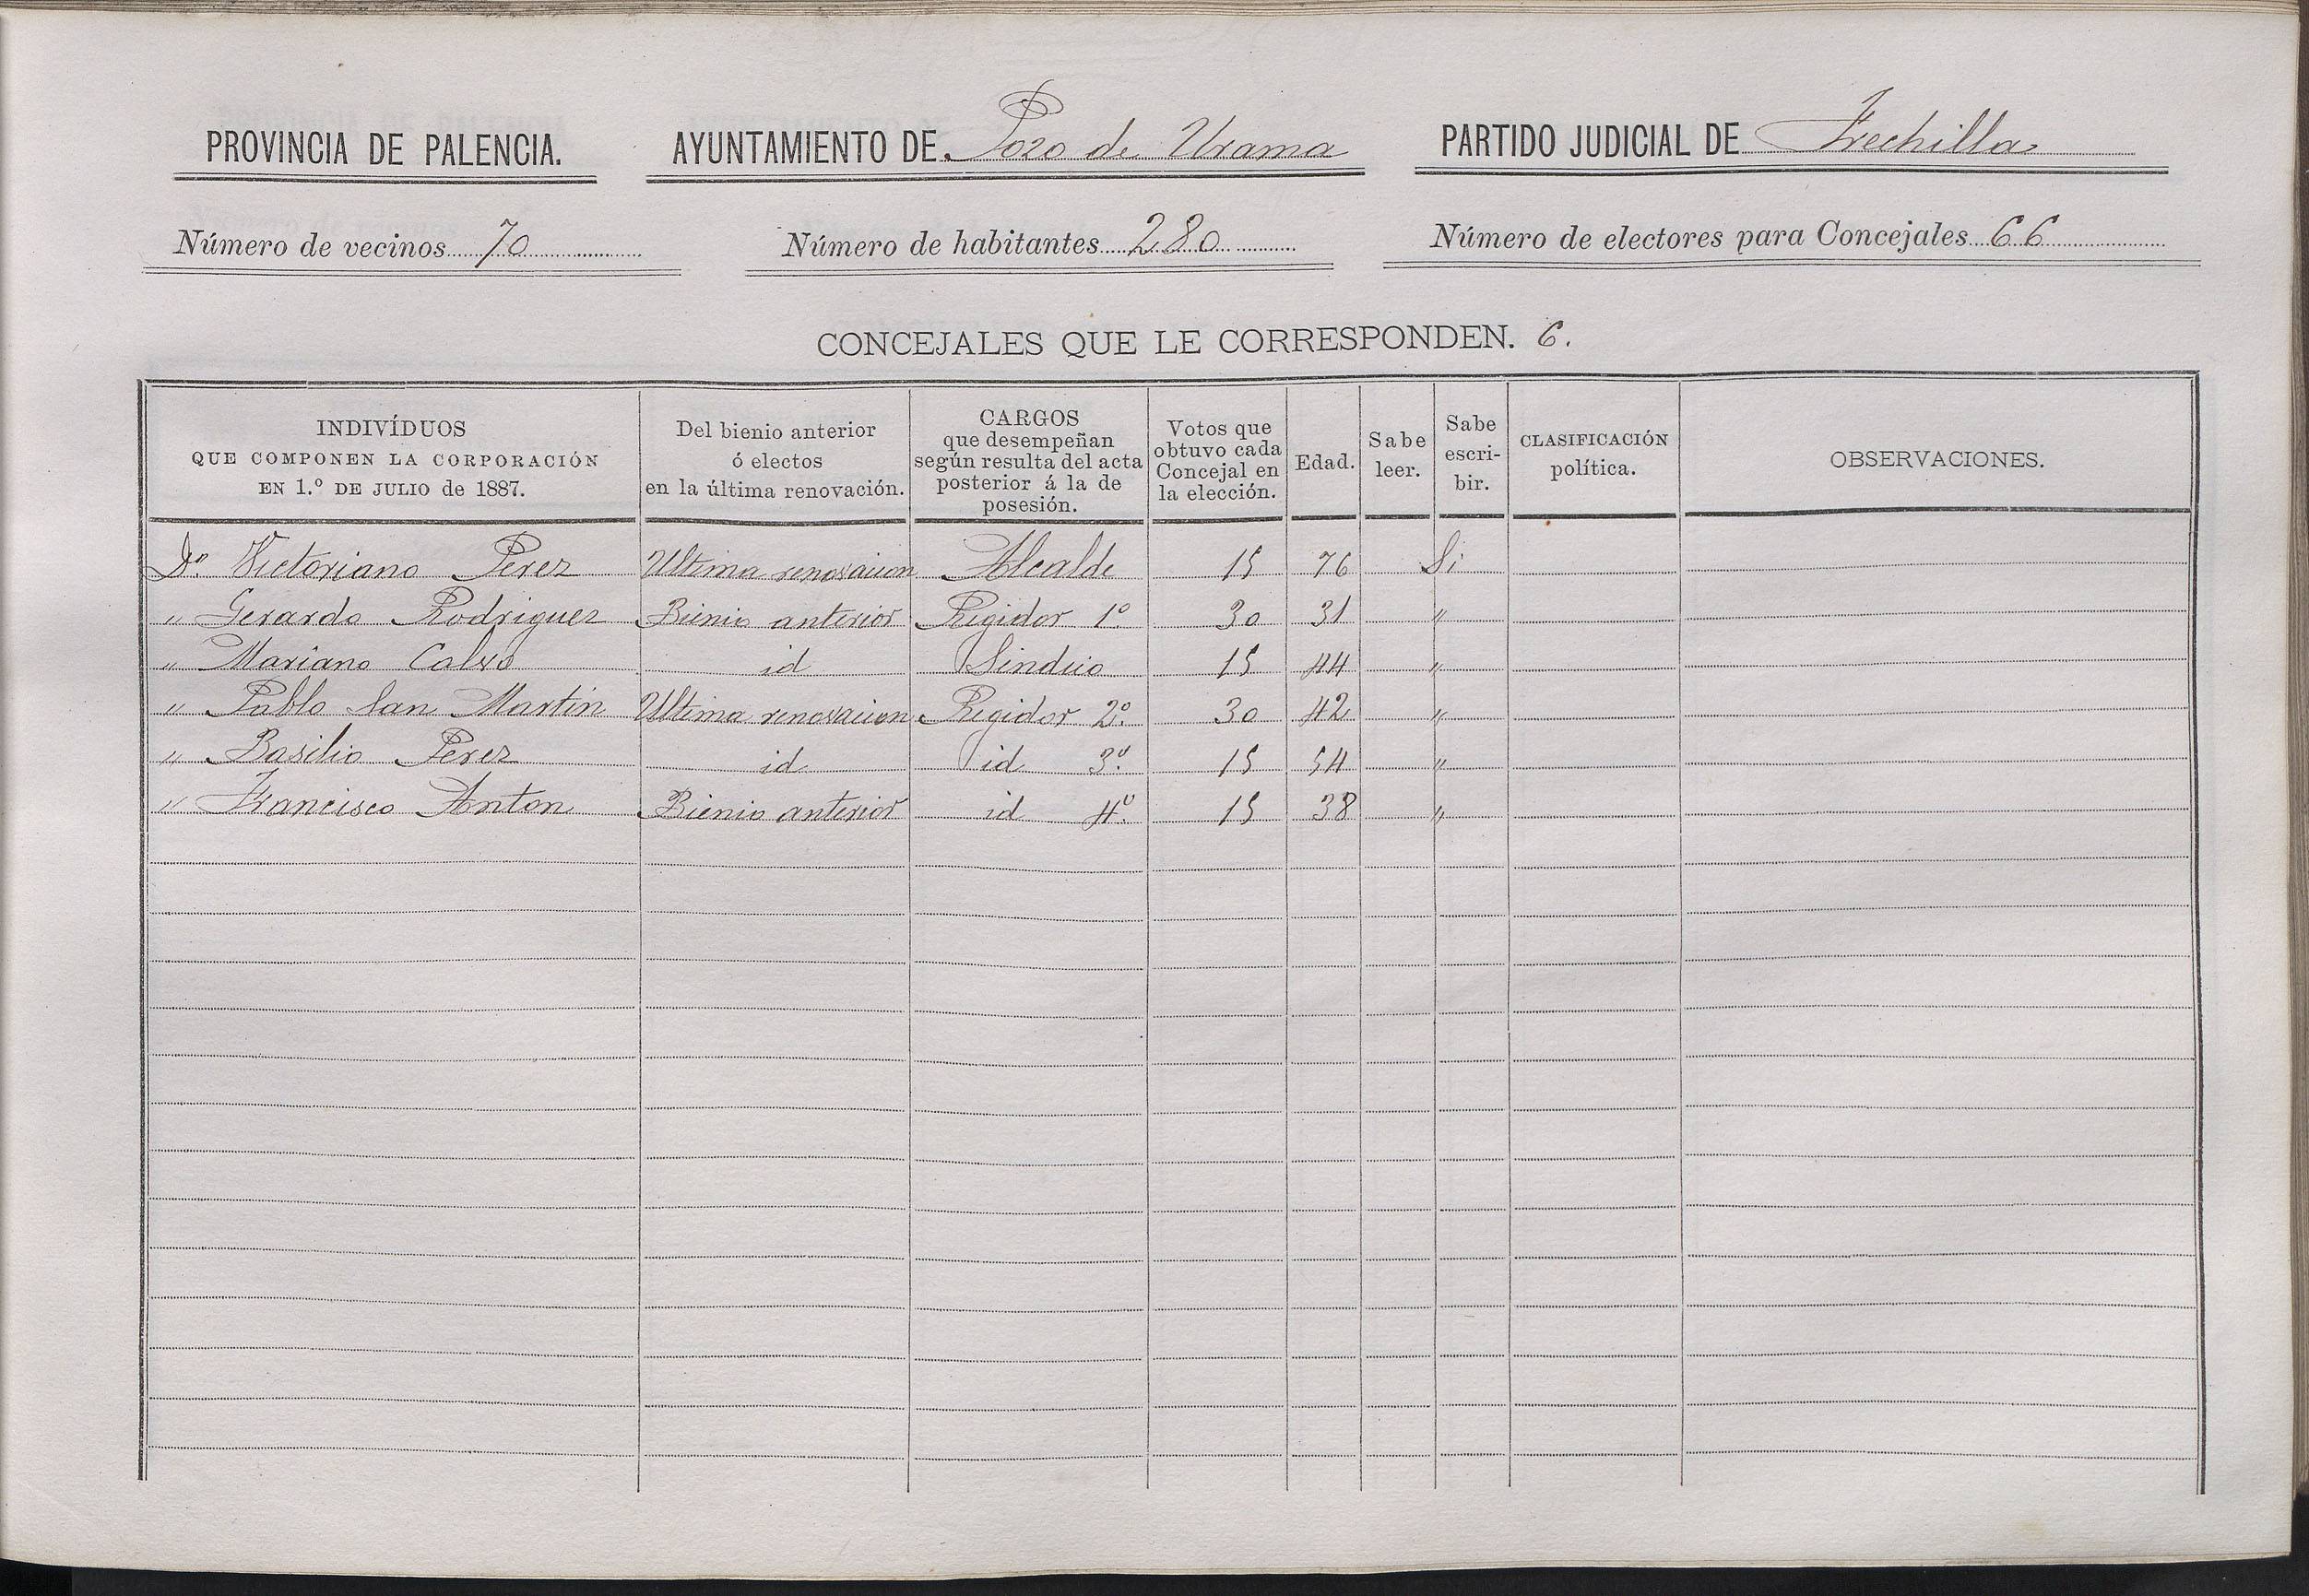 PROVINCIA DE PALENCIA. AYUNTAMIENTO DE Pozo de Urama PARTIDO JUDICIAL DE Frechilla
Número de vecinos 70 Número de habitantes 280 Número de electores para Concejales 66
CONCEJALES QUE LE CORRESPONDEN. 6.
INDIVÍDUOS
QUE COMPONEN LA CORPORACIÓN
EN 1.º DE JULIO de 1887.
Del bienio anterior
ó electos
en la última renovación.
CARGOS
que desempeñan
según resulta del acta
posterior á la de
posesión.
Votos que
obtuvo cada
Concejal en
la elección.
Edad.
Sabe
leer.
Sabe
escri-
bir.
CLASIFICACIÓN
política.
OBSERVACIONES.
Dn. Victoriano Perez Ultima renovacion Alcalde 15 76 Si
" Gerardo Rodriguez Bienio anterior Regidor 1º 30 31 "
" Mariano Calvo id Sindico 15 44 "
" Pablo San Martin Ultima renovacion Regidor 2º. 30 42 "
" Basilio Perez id id 3º. 15 54 "
" Francisco Anton Bienio anterior id 4º. 15 38 "